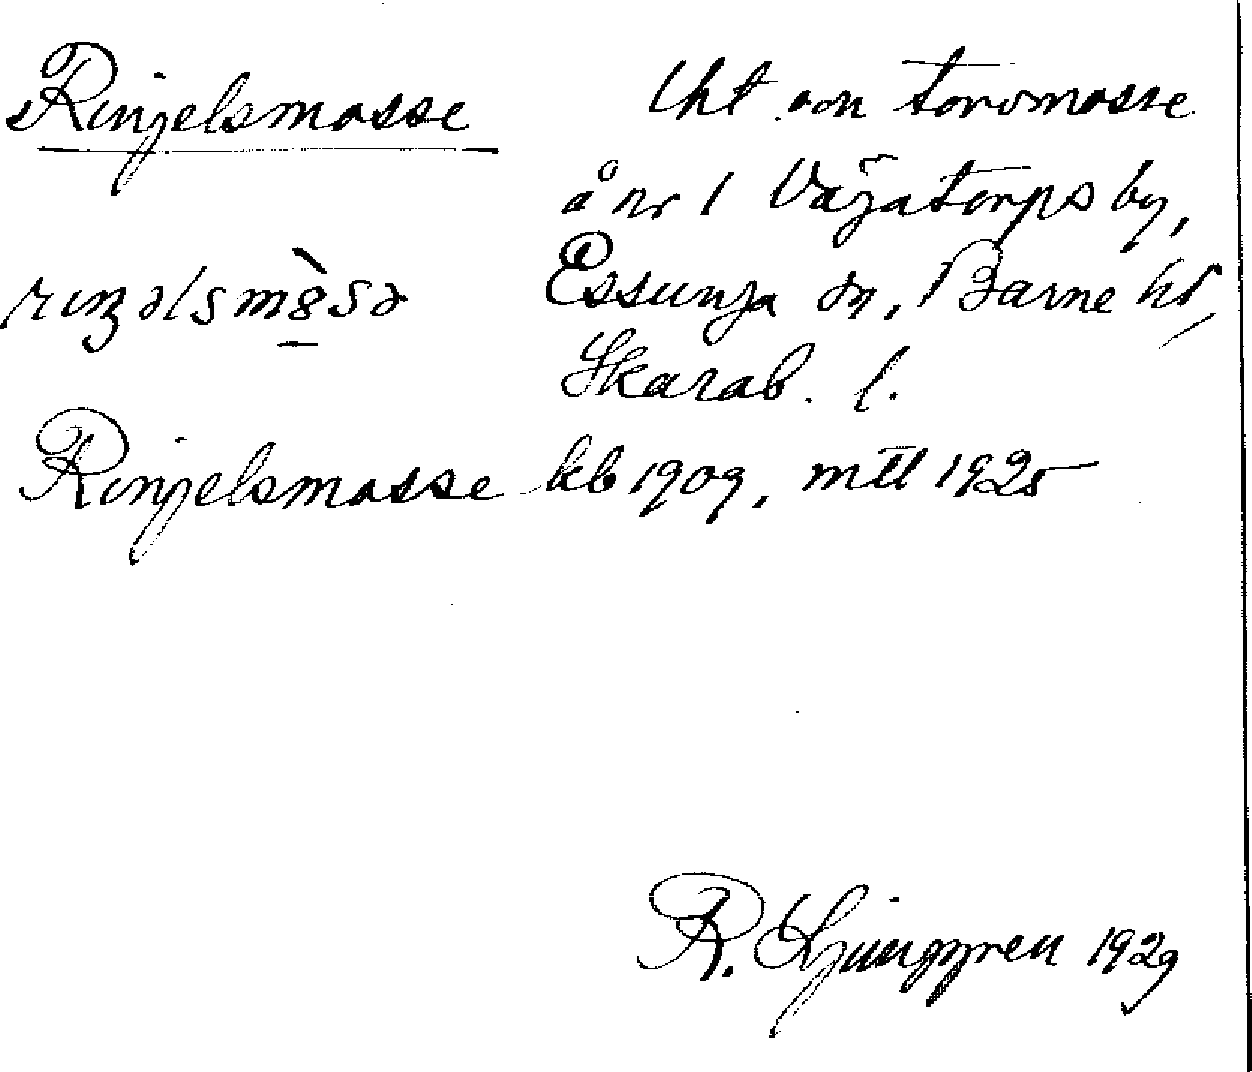 Ringelsmosse
Uht om torvmosse
å nr 1 Vägatorps by,
Essunga sn, Barne hd,
Skarab. l.
Ringelsmosse kb 1909, mtl 1925
R. Ljunggren 1929